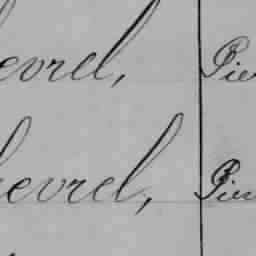 evrel, Pie
hevrel, Pier